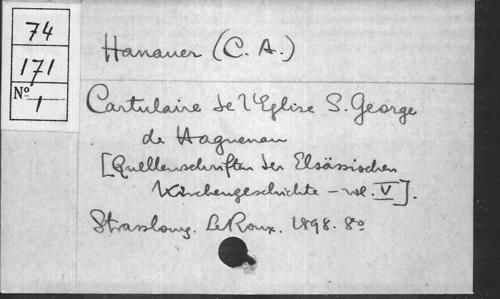 74
171
Nº
1
Hanauer (C. A.)
Cartulaire de l'Eglise S. George
de Haguenau
[Quellenschriften der Elsässischen
Kirchengeschichte - vol. V].
Strasbourg. Le Roux. 1898. 8º